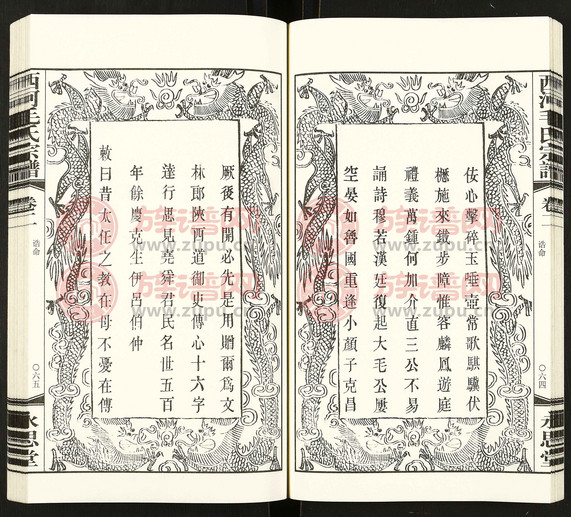 西河毛氏宗譜
卷二
誥命
〇六四
永思堂
伎心擊碎玉唾壺常歌騏驥伏
櫪施來鐵步障惟容麟鳳遊庭
禮義萬鍾何加介直三公不易
誦詩穆若漢廷復起大毛公屢
空晏如魯國重逢小顏子克昌
厥後有開必先是用贈爾爲文
林郎陝西道御史傳心十六字
達行思見堯舜君民名世五百
年餘慶克生伊呂伯仲
敕曰昔太任之教在母不憂在傳
西河毛氏宗譜
卷二
誥命
〇六五
永思堂
族譜网
www.zupu.cn